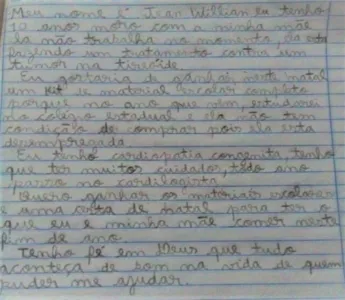 Meu nome é Jean Willian eu tenho
10 anos moro com a minha mãe
ela não trabalha no momento, ela está
fazendo um tratamento contra um
tumor na tireoide.
Eu gostaria de ganhar neste natal
um kit de material escolar completo
porque no ano que vem, estudarei
no colégio estadual e ela não tem
condição de comprar pois ela esta
desempregada.
Eu tenho cardiopatia congenita, tenho
que ter muitos cuidados, todo ano
passo no cardiologista.
Quero ganhar os materiais escolares
e uma cesta de natal para ter o
que eu e minha mãe comer neste
fim de ano.
Tenho fé em Deus que tudo
aconteça de bom na vida de quem
puder me ajudar.